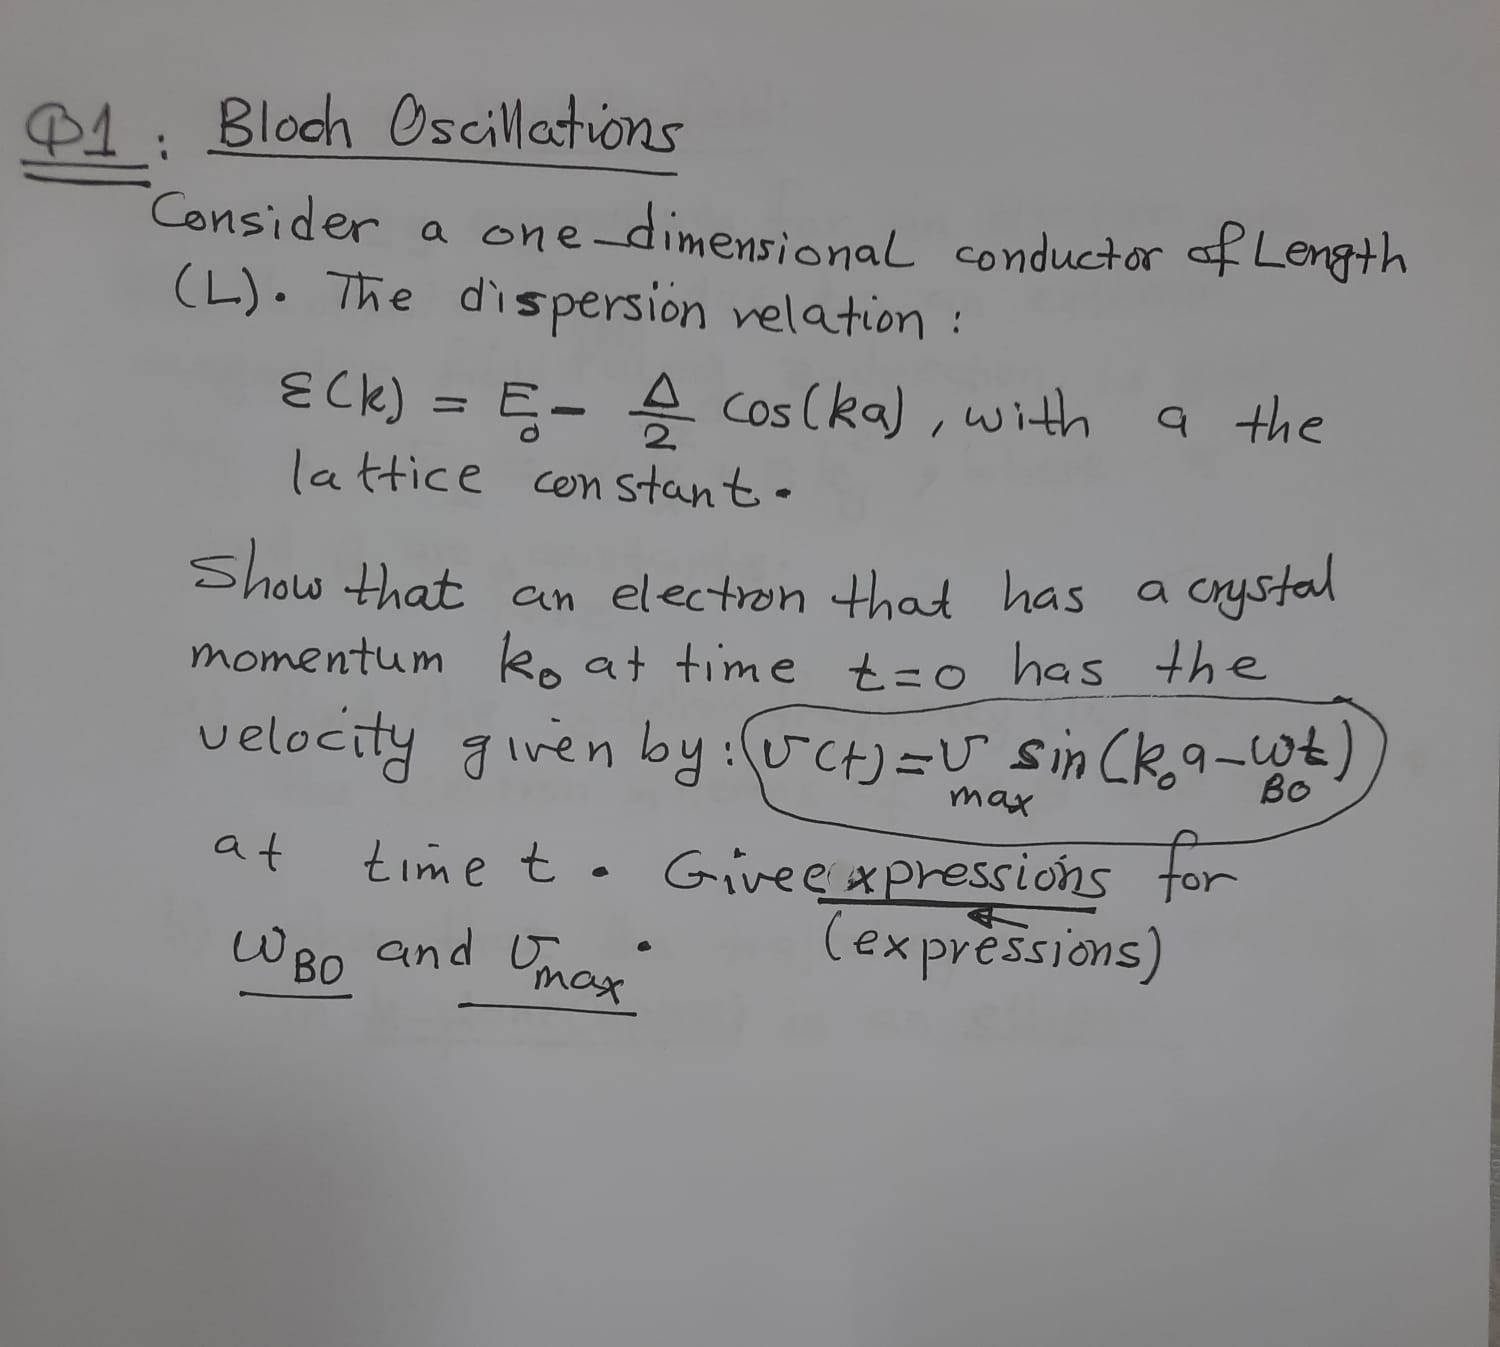 Q1: Bloch Oscillations
Consider a one-dimensional conductor of Length
(L). The dispersion relation:
ε(k) = E₀ - Δ/2 cos(ka), with a the
lattice constant.
Show that an electron that has a crystal
momentum k₀ at time t=0 has the
velocity given by: v(t)=v_max sin(k₀a-ω_BO t)
at time t. Give expressions for
(expressions)
ω_BO and v_max.